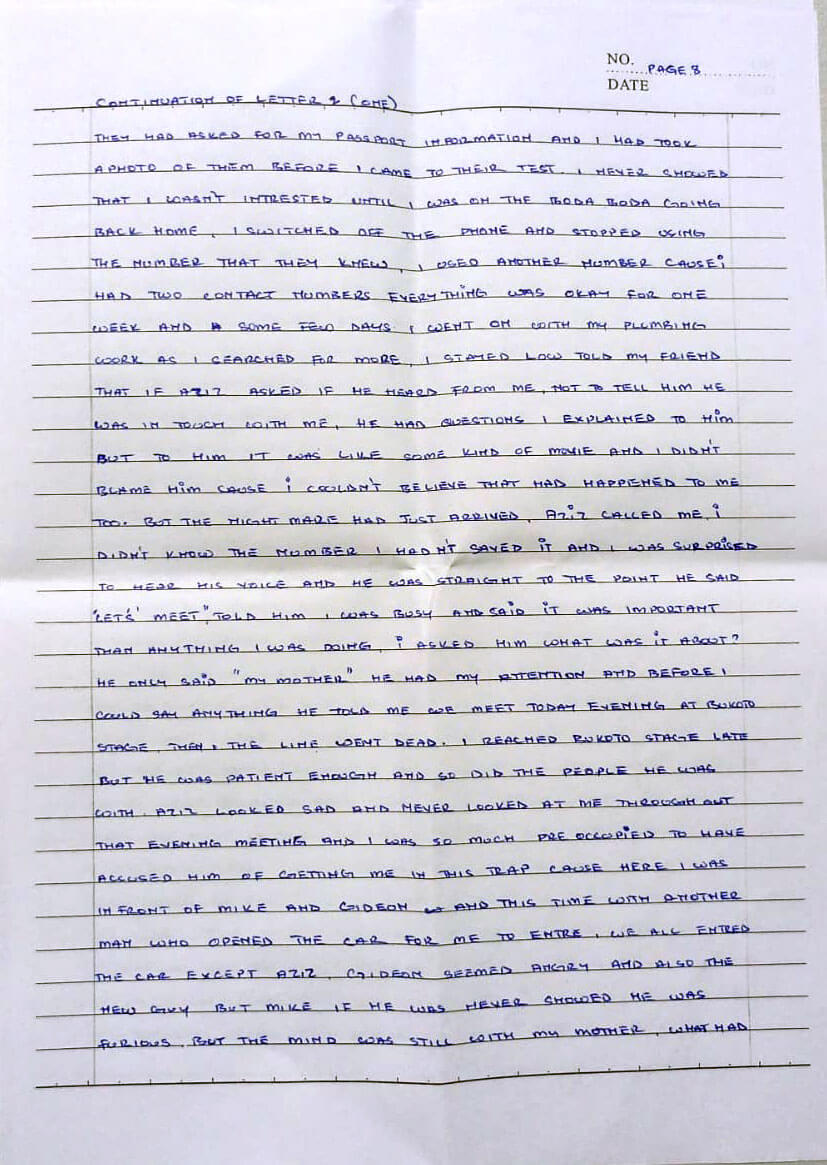 NO. PAGE 8
DATE
CONTINUATION OF LETTER 2 (ONE)
THEY HAD ASKED FOR MY PASSPORT INFORMATION AND I HAD TOOK
A PHOTO OF THEM BEFORE I CAME TO THEIR TEST. I NEVER SHOWED
THAT I WASN'T INTRESTED UNTIL I WAS ON THE BODA BODA GOING
BACK HOME, I SWITCHED OFF THE PHONE AND STOPPED USING
THE NUMBER THAT THEY KNEW, I USED ANOTHER NUMBER CAUSE i
HAD TWO CONTACT NUMBERS EVERYTHING WAS OKAY FOR ONE
WEEK AND SOME FEW DAYS. I WENT ON WITH MY PLUMBING
WORK AS I SEARCHED FOR MORE, I STAYED LOW TOLD MY FRIEND
THAT IF AZIZ ASKED IF HE HEARD FROM ME, NOT TO TELL HIM HE
WAS IN TOUCH WITH ME, HE HAD QUESTIONS I EXPLAINED TO HiM
BUT TO HIM IT WAS LIKE SOME KIND OF MOVIE AND I DIDN'T
BLAME HiM CAUSE i COULDN'T BELIEVE THAT HAD HAPPENED TO ME
TOO. BUT THE NIGHT MARE HAD JUST ARRIVED, AZiZ CALLED ME, i
DIDN'T KNOW THE NUMBER I HADN'T SAVED iT AND I WAS SURPRISED
TO HEAR HIS VOICE AND HE WAS STRAIGHT TO THE POINT HE SAID
"LET'S' MEET", TOLD HIM I WAS BUSY AND SAiD iT WAS IMPORTANT
THAN ANYTHING I WAS DOING, i ASKED HIM WHAT WAS iT ABOUT?
HE ONLY SAiD "MY MOTHER" HE HAD MY ATTENTION AND BEFORE I
COULD SAY ANYTHING HE TOLD ME WE MEET TODAY EVENING AT BUKOTO
STAGE, THEN, THE LINE WENT DEAD. I REACHED BUKOTO STAGE LATE
BUT HE WAS PATIENT ENOUGH AND SO DID THE PEOPLE HE WAS
WITH. AZIZ LOOKED SAD AND NEVER LOOKED AT ME THROUGH OUT
THAT EVENING MEETING AND I WAS SO MUCH PRE OCCUPiED TO HAVE
ACCUSED HIM OF GETTING ME IN THIS TRAP CAUSE HERE I WAS
IN FRONT OF MIKE AND GIDEON AND THIS TIME WITH ANOTHER
MAN WHO OPENED THE CAR FOR ME TO ENTRE, WE ALL ENTRED
THE CAR EXCEPT AZIZ, GIDEON SEEMED ANGRY AND ALSO THE
NEW GUY BUT MIKE IF HE WAS NEVER SHOWED HE WAS
FURIOUS, BUT THE MIND WAS STILL WITH MY MOTHER, WHAT HAD